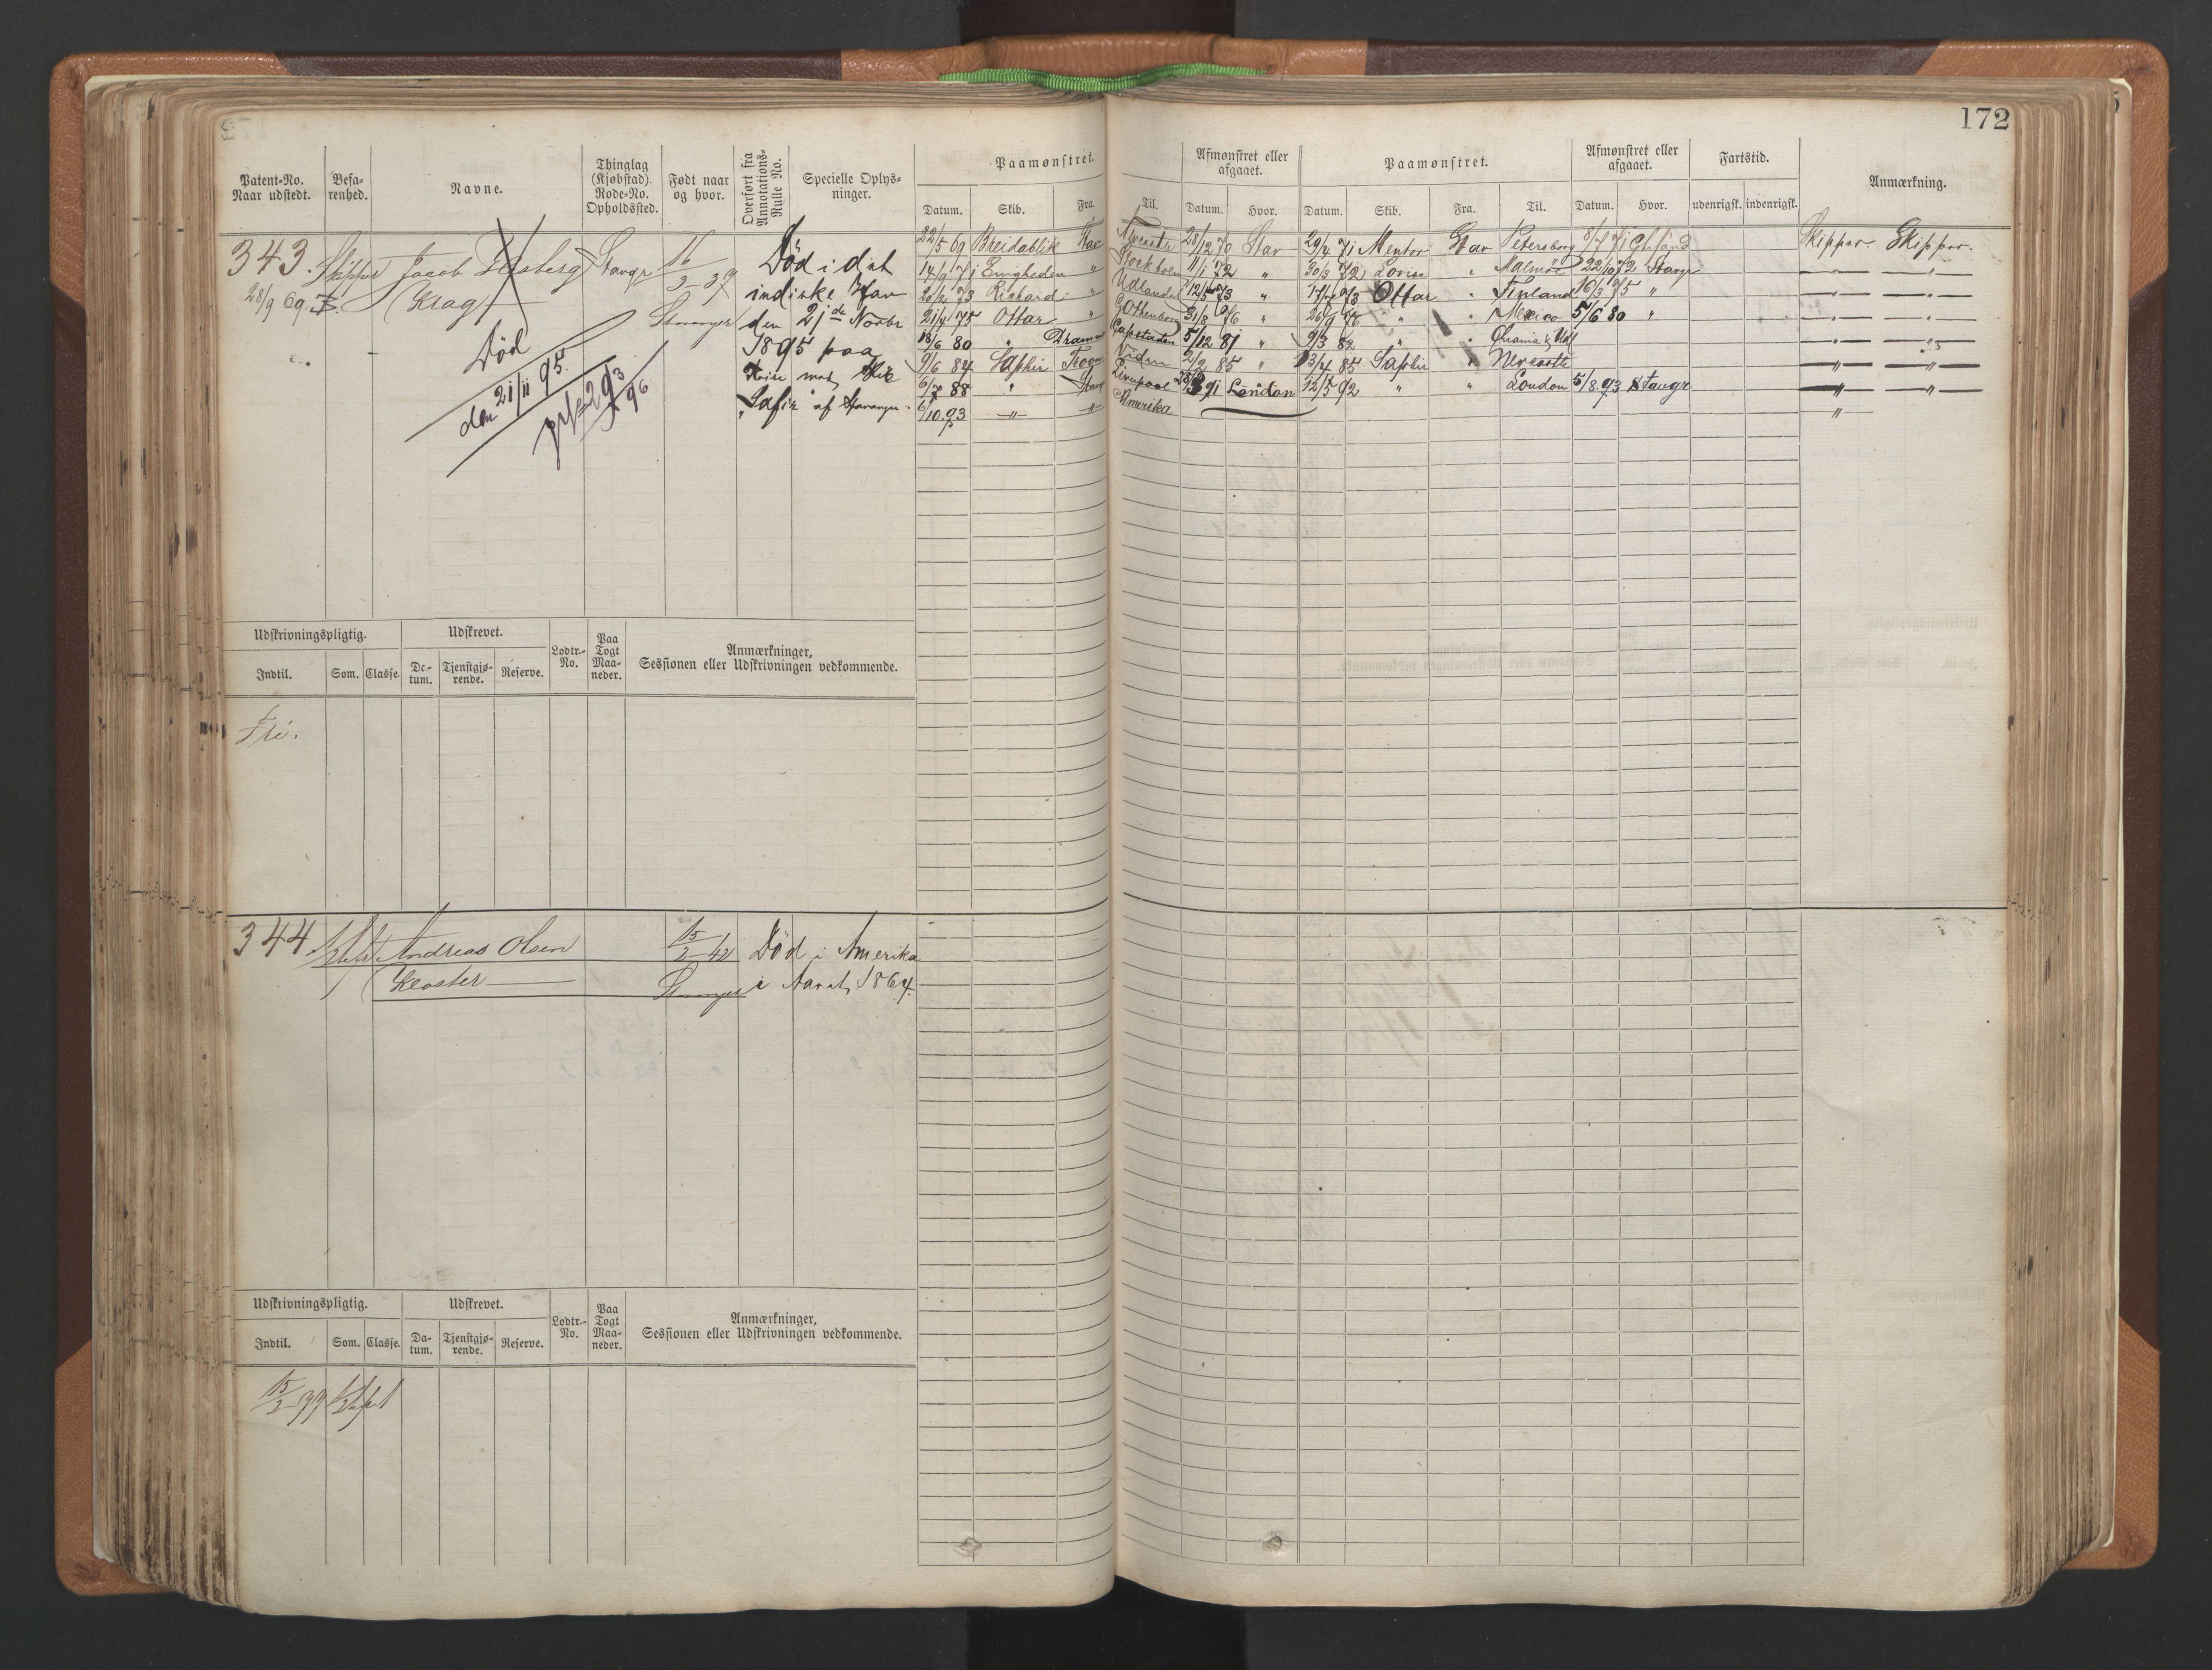 172
Patent-No. Naar udstedt. Befa-renhed. Navne. Thinglag (Kjøbstad). Rode-No. Opholdssted. Født naar og hvor. Overført fra Annotations-Rulle No. Specielle Oplys-ninger. Paamønstret. Afmønstret eller afgaaet. Paamønstret. Afmønstret eller afgaaet. Fartstid. Anmærkning.
Datum. Skib. Fra. Til. Datum. Hvor. Datum. Skib. Fra. Til. Datum. Hvor. udenrigsk. indenrigsk.
343. Skipper Jacob Stavgr 16/3 37 Død i det
28/9 69. Krag Stavanger indiske Hav
den 21de Novbr
1895 paa
Reise med Skib
"Safir" af Stavanger
Død
den 21/11 95.
22/5 69 Breidablik Stav 28/12 70 Stav 29/4 71 Mentor Stav Petersborg 8/7 71 Skipper. Skipper.
14/9 71 Enigheden " Stockholm 11/1 72 " 30/3 72 Lovise " Malmöe 22/10 72 Stavgr — " — — " —
20/2 73 Richard " Udlandet 12/5 73 " 17/7 73 Ottar " Finland 16/3 75 " — " — — " —
21/4 75 Ottar " Gothenborg 31/8 76 " 26/9 76 " " Mexico 5/6 80 " — " — — " —
18/6 80 " Dramm Capstaden 5/12 81 " 9/3 82 " " Chania & Udl — " — — " —
9/6 84 Saphir 2/2 85 " 13/4 85 Saphir " Newcastle — " — — " —
6/7 88 " Stavgr Liverpool 91 London 12/5 92 " " London 5/8.93 Stavgr — " — — " —
6/10.93 —"— —"— Amerika — " —
Udskrivningspligtig. Udskrevet. Lodtr.-No. Paa Togt Maa-neder. Anmærkninger, Sessionen eller Udskrivningen vedkommende.
Indtil. Som. Classe. Da-tum. Tjenstgjø-rende. Reserve.
Fri.
344 Andreas Olsen 15/2 42 Død i Amerika
Kloster Stavanger i Aaret 1864.
Udskrivningspligtig. Udskrevet. Lodtr.-No. Paa Togt Maa-neder. Anmærkninger, Sessionen eller Udskrivningen vedkommende.
Indtil. Som. Classe. Da-tum. Tjenstgjø-rende. Reserve.
15/2 77